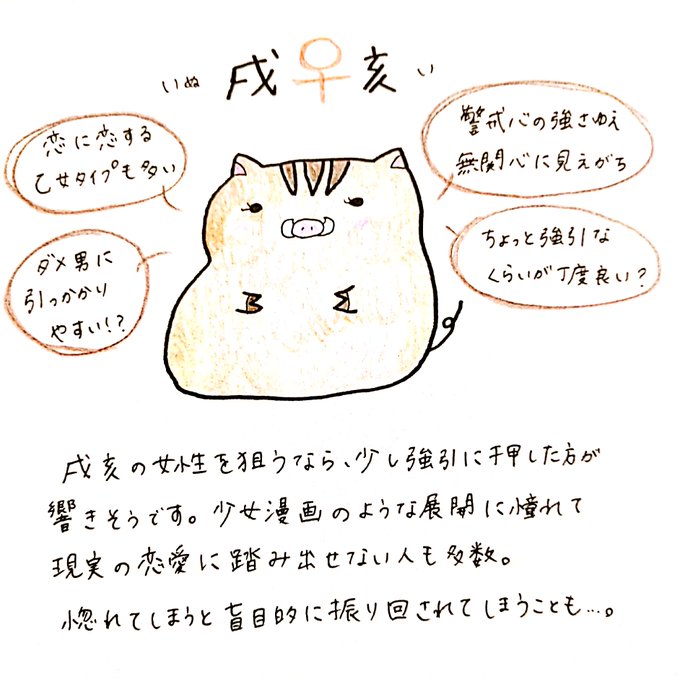 いぬ 戌 亥 い
恋に恋する
乙女タイプも多い
警戒心の強さゆえ
無関心に見えがち
ダメ男に
引っかかり
やすい!?
ちょっと強引な
くらいが丁度良い?
戌亥の女性を狙うなら、少し強引に押した方が
響きそうです。少女漫画のような展開に憧れて
現実の恋愛に踏み出せない人も多数。
惚れてしまうと盲目的に振り回されてしまうことも…。